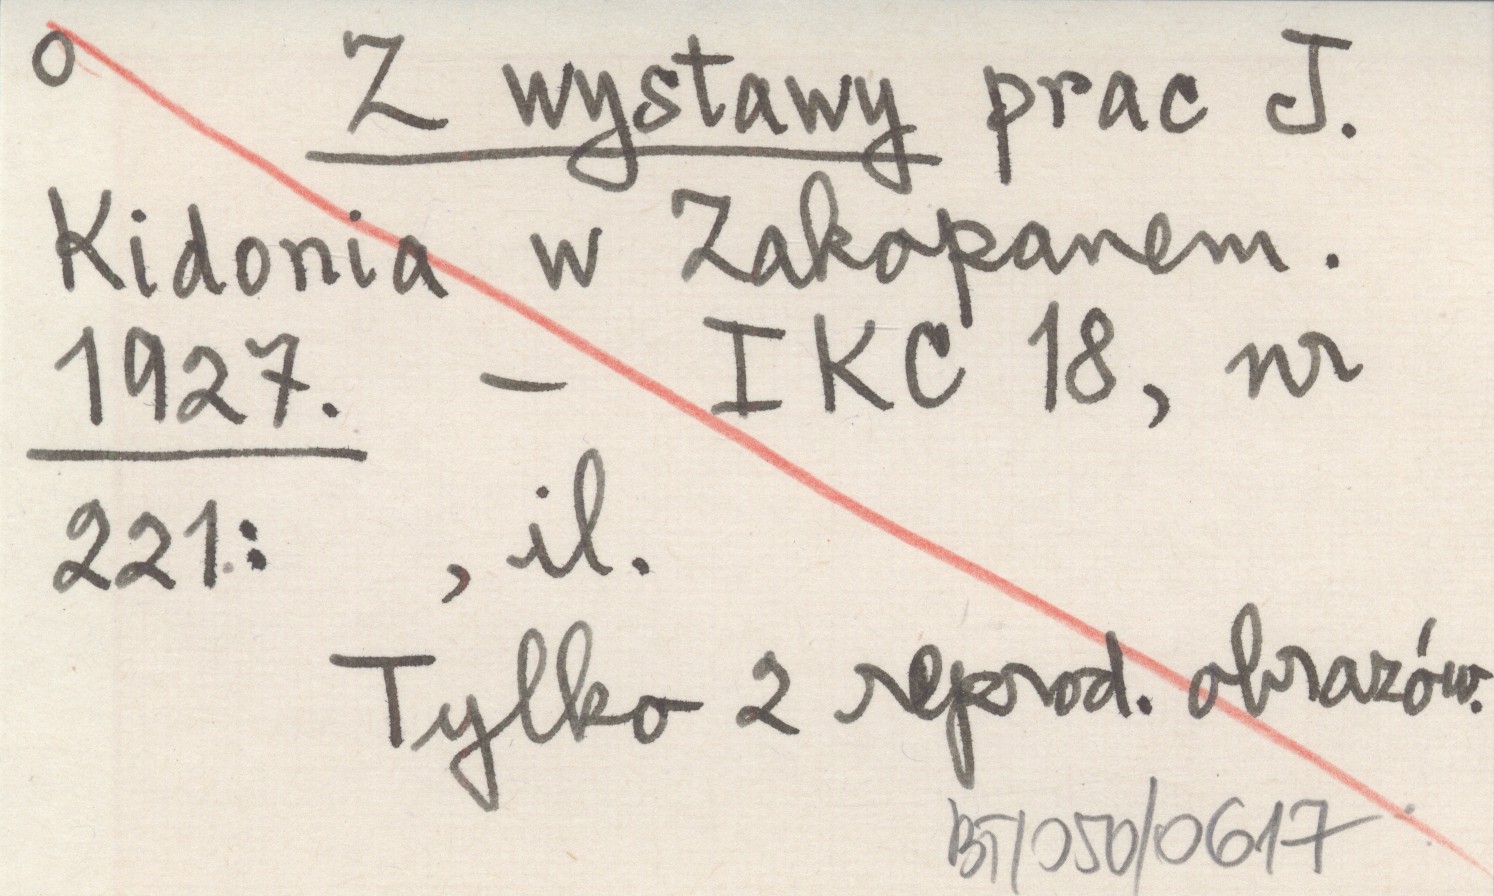 o Z wystawy prac J.
Kidonia w Zakopanem.
1927. - IKC 18, nr
221: , il.
Tylko 2 reprod. obrazów.
BT/050/0617